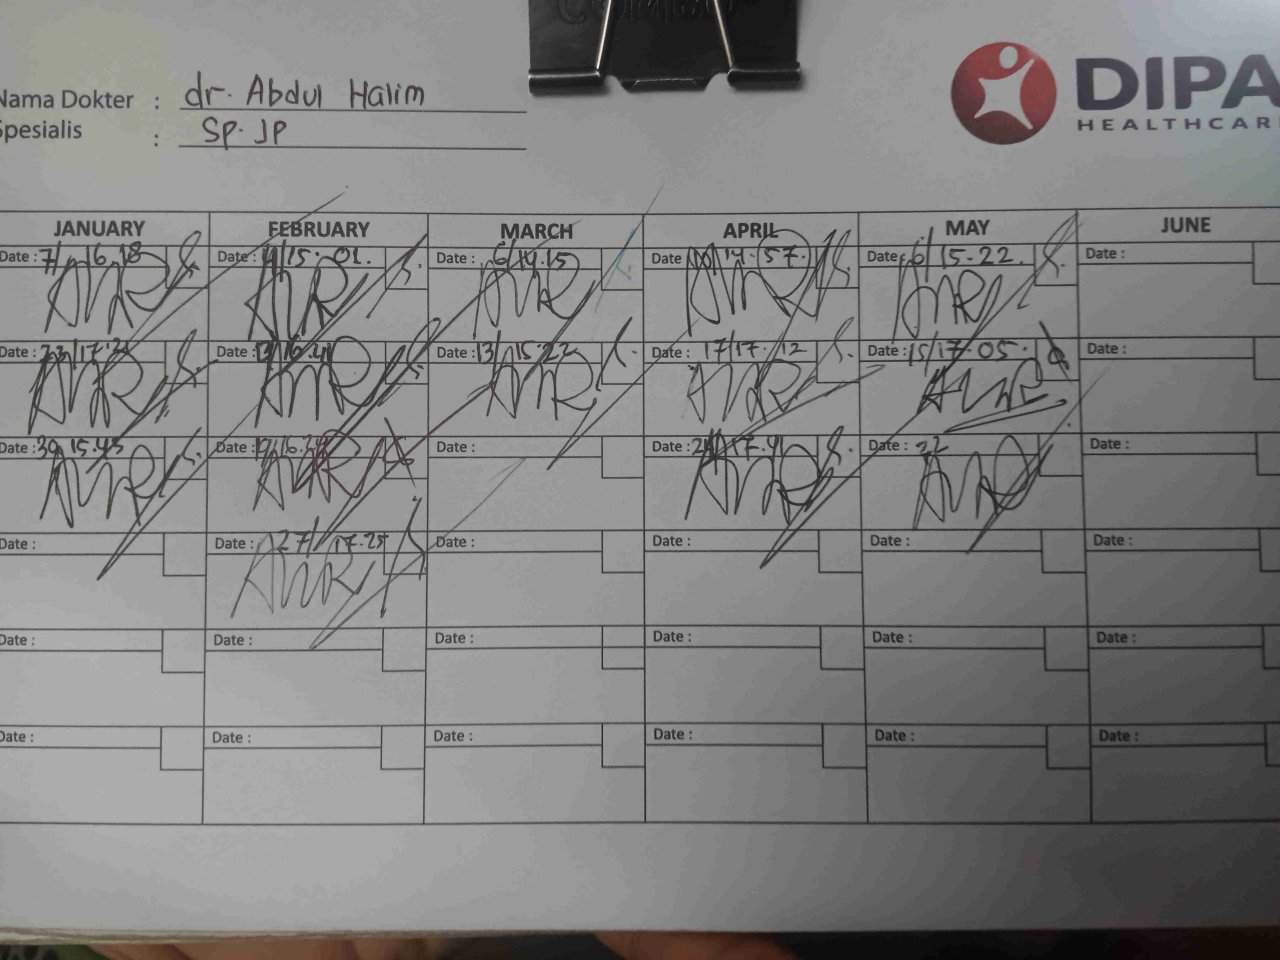 Nama Dokter : dr. Abdul Halim
Spesialis : Sp. JP
DIPA
HEALTHCAR
JANUARY FEBRUARY MARCH APRIL MAY JUNE
Date : 7/ 16.18 Date : 15.01. Date : 6/14.15 Date 14.57 Date : 6/15.22. Date :
Date : 17.21 Date : 13/16.41 Date : 13/15.22 Date : 17/17.12 Date : 15/17.05 Date :
Date : 30 15.45 Date : 16.24 Date : Date : 17.41 Date : 22 Date :
Date : Date : 27/ 17.25 Date : Date : Date : Date :
Date : Date : Date : Date : Date : Date :
Date : Date : Date : Date : Date : Date :